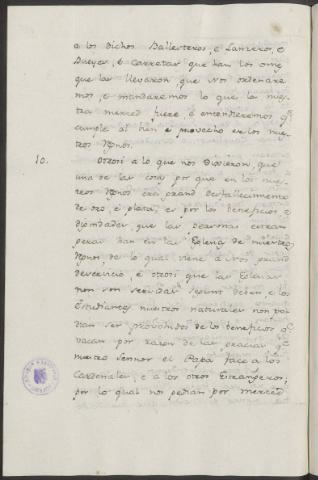 a los dichos Ballesteros, e Lanzeros, e
Bueyes, e carretas que han los omes
que las llevaron, que Nos ordenare
mos, e mandaremos lo que la nues
tra merced fuere, e entendieremos q.e
cumple al bien e provecho en los nues
tros Rgnos.
10. Otrosi a lo que nos dixieron, que
una de las cosas por que en los nues
tros Rgnos era grand desfallecimiento
de oro, e plata, es por los beneficios, e
dignidades que las personas estran
geras han en las Eglesias de nuestros
Rgnos, de lo qual viene a Nos grand
deservicio, e otrosi que las Eglesias
non son servidas segunt deben, e los
Estudiantes nuestros naturales non po
dian ser provehidos de los beneficios q.e
vacan por razon de las gracias q.e
nuestro Sennor el Papa face a los
Cardenales, e a los otros Estrangeros,
por lo qual nos pedian por merced